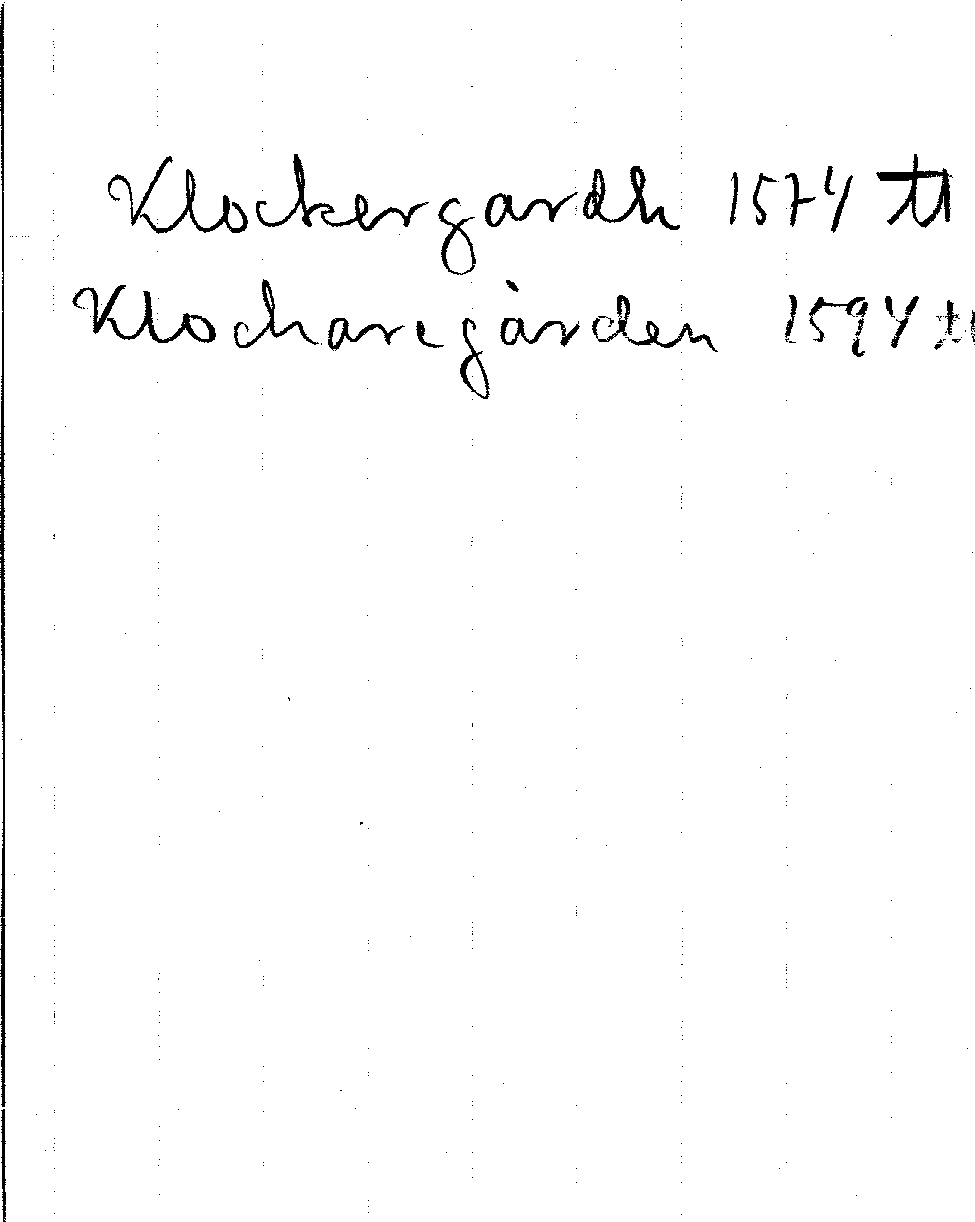 Klockergardh 1574 tl
Klockaregården 1594 tl